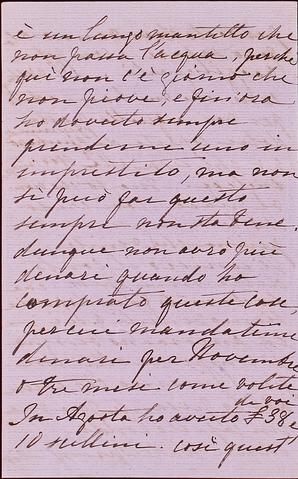 è un lungo mantello che
non passa l'acqua, perche
quì non c'è giorno che
non piove, e finora
ho dovuto sempre
prenderne uno in
imprestito, ma non
si può far questo
sempre non sta bene.
dunque non avrò più
denari quando ho
comprato queste cose,
perciò mandatemi
denari per Novembre
o tre mesi come volete
de voi
In Agosto ho avuto £38 e
10 scellini. così quest